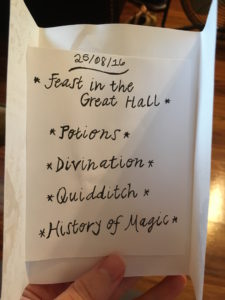 25/08/16
* Feast in the
Great Hall *
* Potions *
* Divination *
* Quidditch *
* History of Magic *